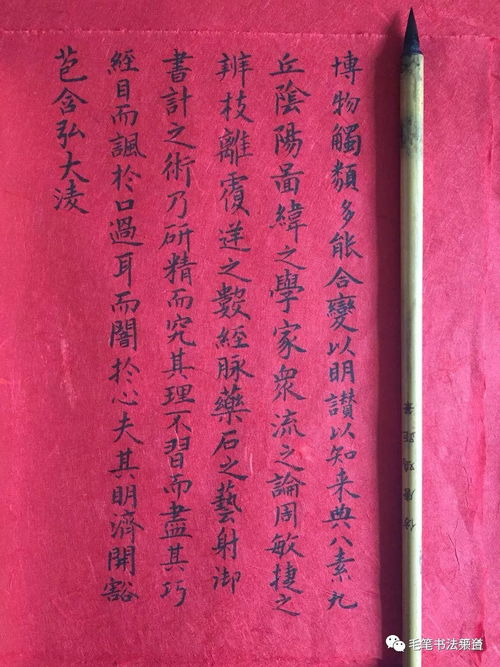 博物觸類多能合變以明讚以知来典八素九
丘陰陽啚緯之學家衆流之論周敏捷之
辨枝離覆逆之數經脉藥石之藝射御
書計之術乃研精而究其理不習而盡其巧
經目而諷於口過耳而闇於心夫其明濟開豁
苞含弘大淩
仿唐鸡距笔
毛笔书法